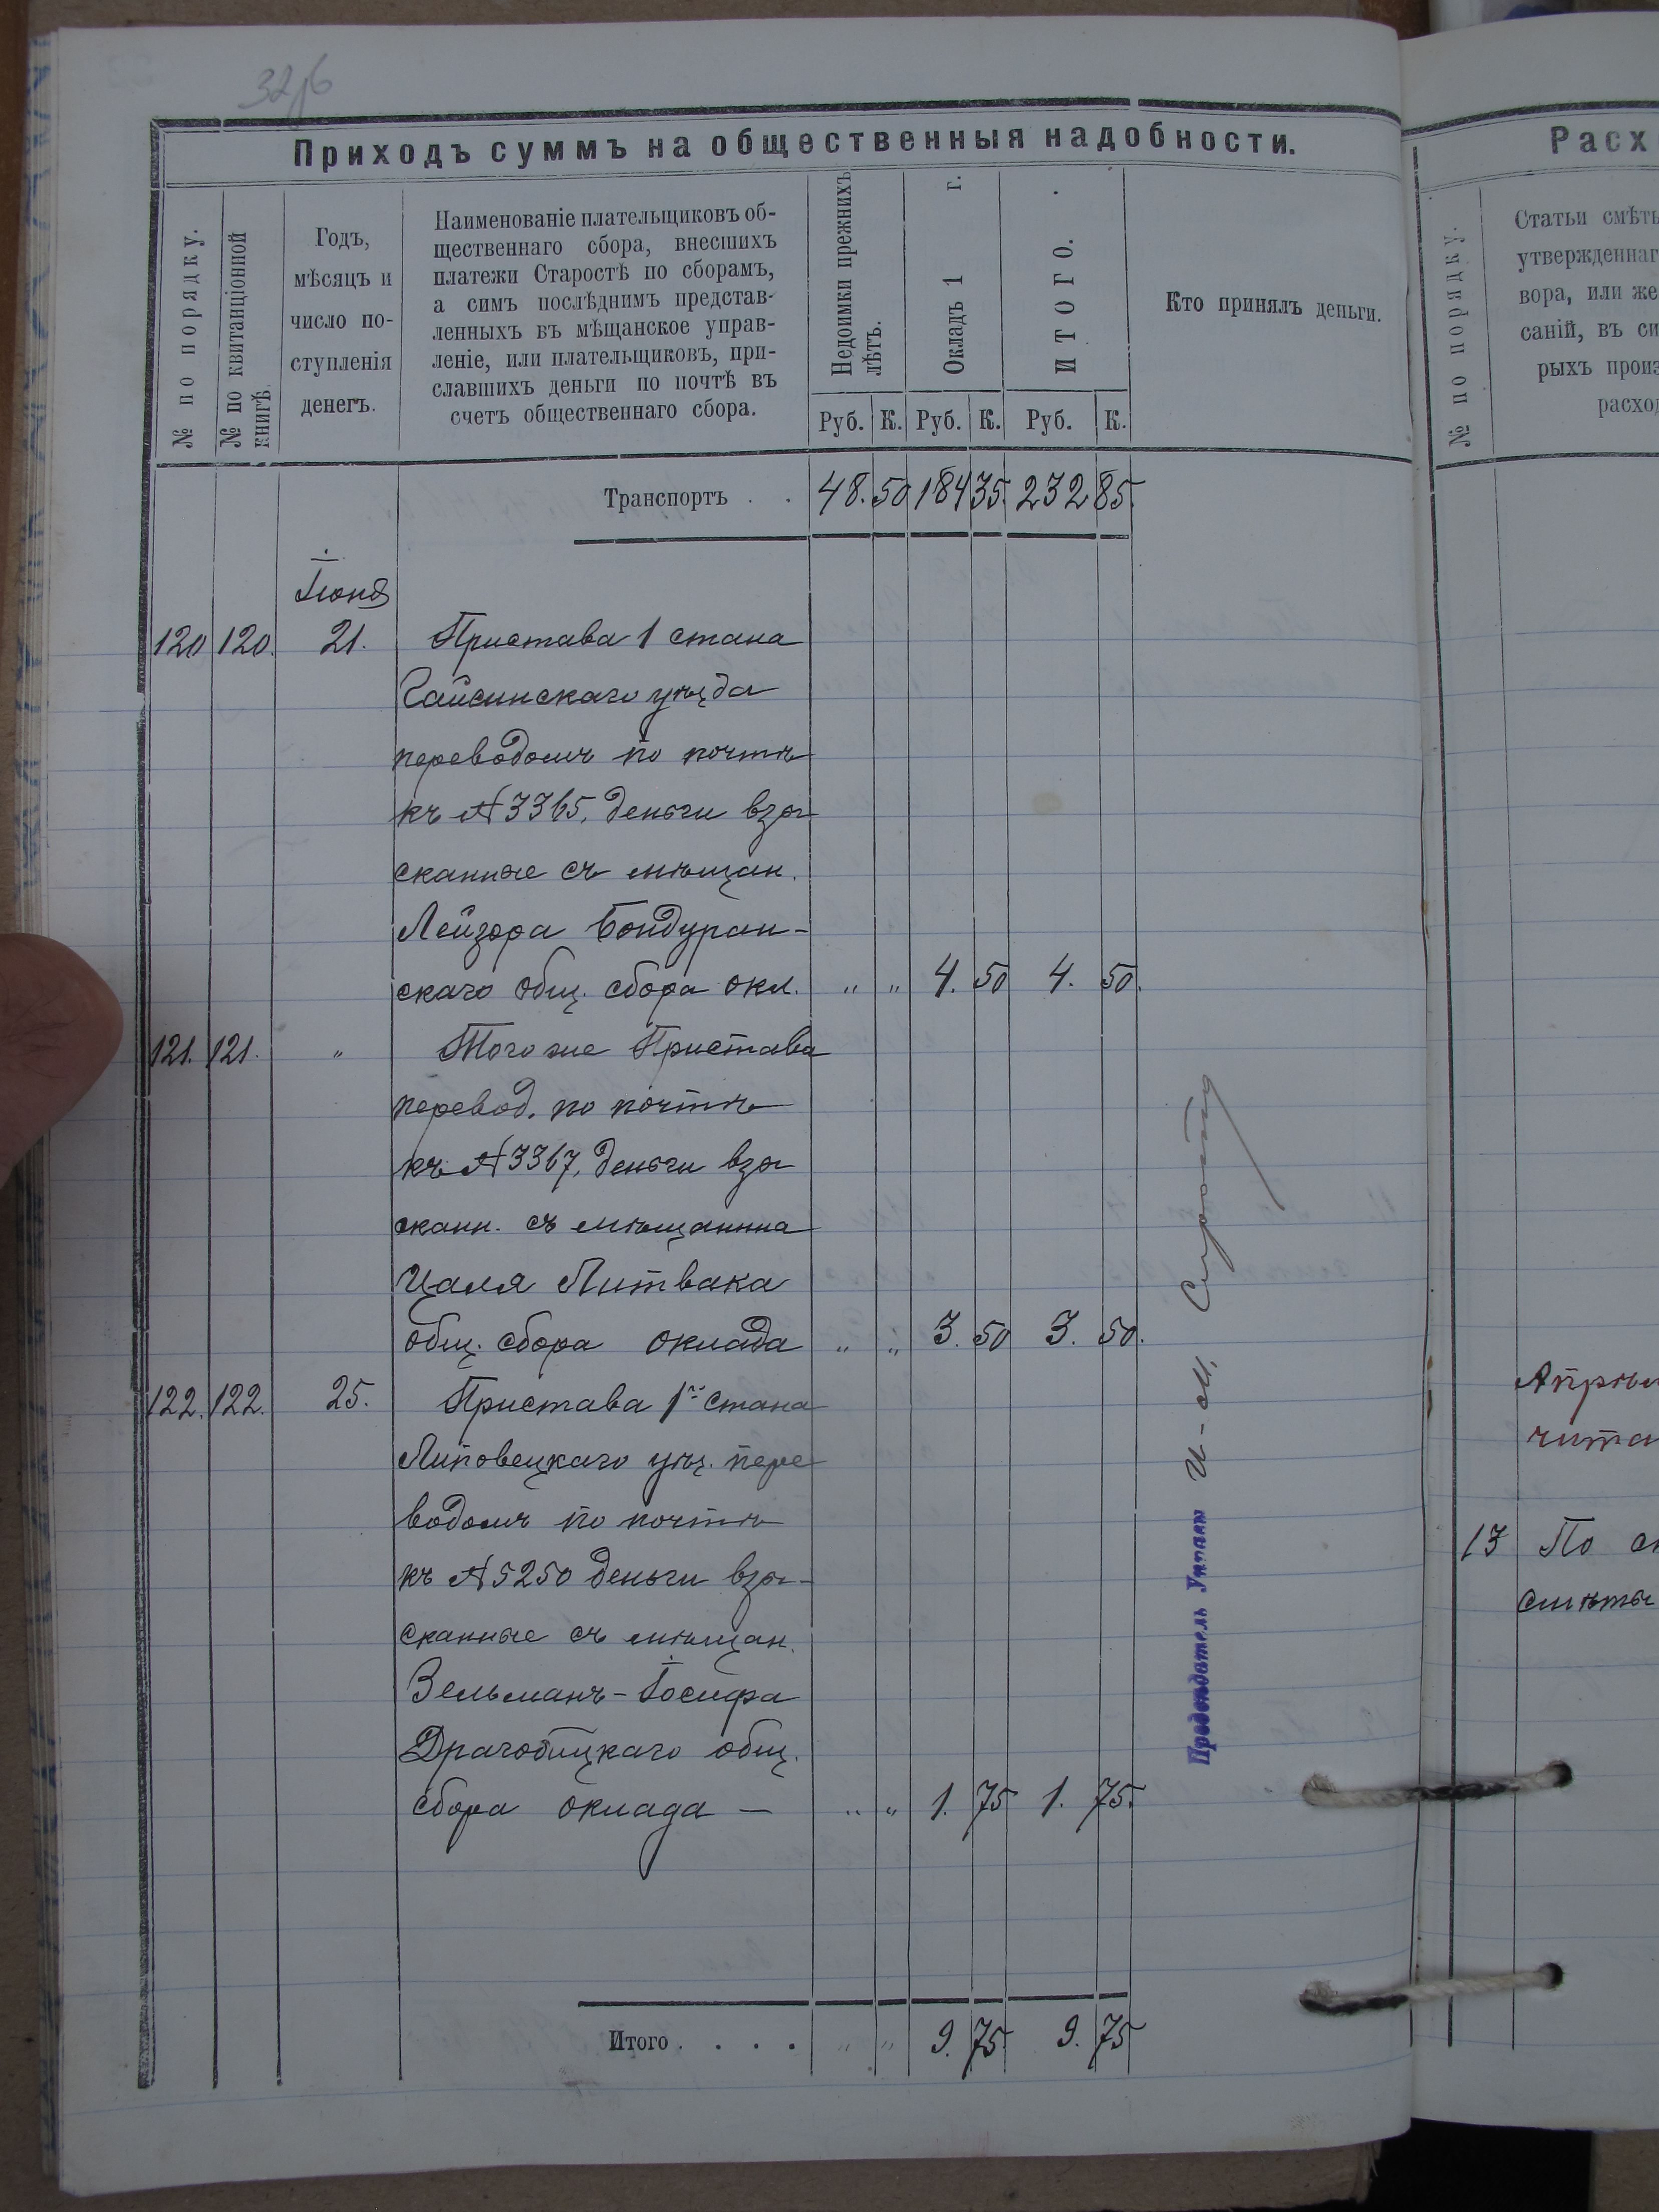 32об
Приходъ суммъ на общественныя надобности.
№ по порядку.
№ по квитанціонной
книгѣ.
Годъ,
мѣсяцъ и
число по-
ступленія
денегъ.
Наименованіе плательщиковъ об-
щественнаго сбора, внесшихъ
платежи Старостѣ по сборамъ,
а симъ послѣднимъ представ-
ленныхъ въ мѣщанское управ-
леніе, или плательщиковъ, при-
славшихъ деньги по почтѣ въ
счетъ общественнаго сбора.
Недоимки прежнихъ
лѣтъ.
Окладъ 1 г.
ИТОГО.
Кто принялъ деньги.
Руб. К. Руб. К. Руб. К.
Транспортъ . . 48. 50 184 35. 232 85.
Іюня
120 120. 21. Пристава 1 стана
Гайсинскаго уѣзда
переводомъ по почтѣ
къ № 3365, деньги взы
сканные съ мѣщан.
Лейзора Бондуран-
скаго общ. сбора окл. „ „ 4. 50 4. 50.
121. 121. „ Того же Пристава
перевод. по почтѣ
къ № 3367, деньги взы
сканн. съ мѣщанина
Цаля Литвака
общ. сбора оклада „ „ 3. 50 3. 50.
122. 122. 25. Пристава 1го стана
Липовецкаго уѣз. пере
водомъ по почтѣ
къ № 5250 деньги взы-
сканные съ мѣщан.
Зельманъ-Іосифа
Драгобицкаго общ.
сбора оклада — „ „ 1. 75 1. 75.
Итого . . . . „ „ 9. 75. 9. 75
Предсѣдатель Управы И-М.
Расх
№ по порядку.
Статьи смѣты
утвержденнаг
вора, или же
саній, въ си
рыхъ произ
расход
чита
13 По
смѣты